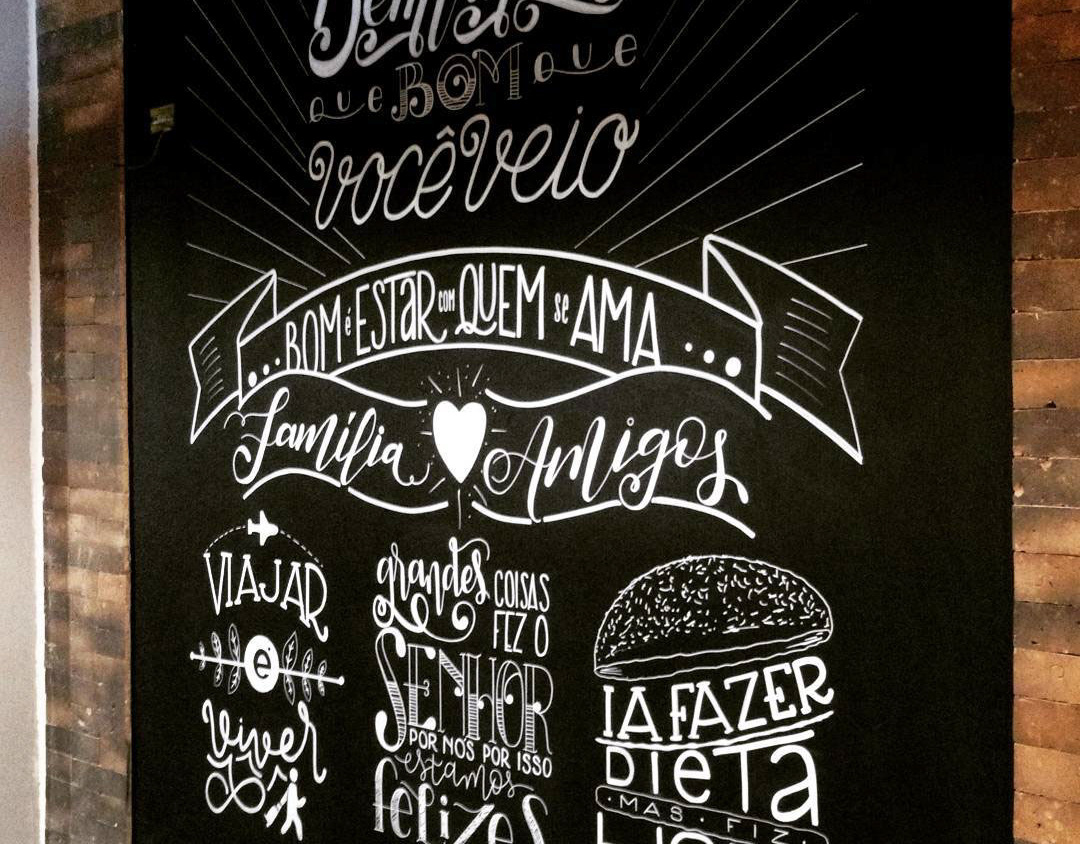 que BOM que
você veio
...BOM é ESTAR com QUEM se AMA...
Família Amigos
VIAJAR
é
viver
grandes COISAS
FEZ O
SENHOR
POR NÓS POR ISSO
estamos
felizes
IA FAZER
DIETA
MAS FIZ